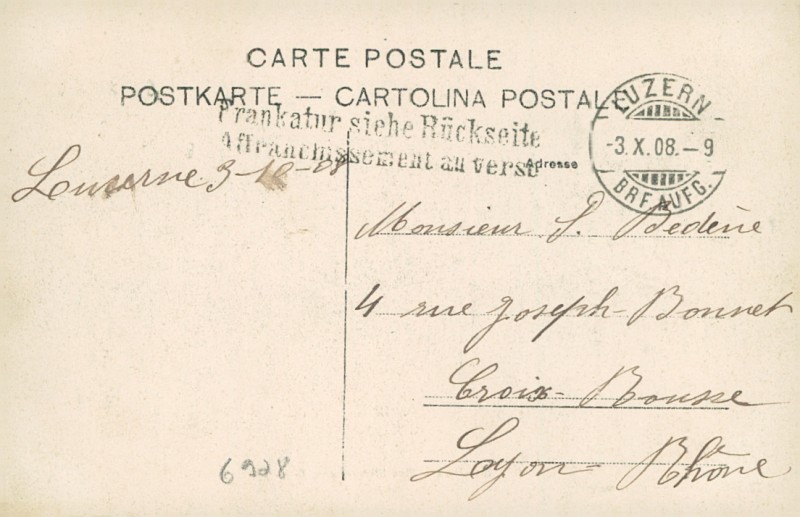 CARTE POSTALE
POSTKARTE — CARTOLINA POSTALE
Frankatur siehe Rückseite
Affranchissement au verso
LUZERN
-3.X.08.-9
BRF. AUFG.
Adresse
Lucerne 3-10-08
Monsieur J. Bedène
4 rue Joseph-Bonnet
Croix-Rousse
Lyon Rhône
6928